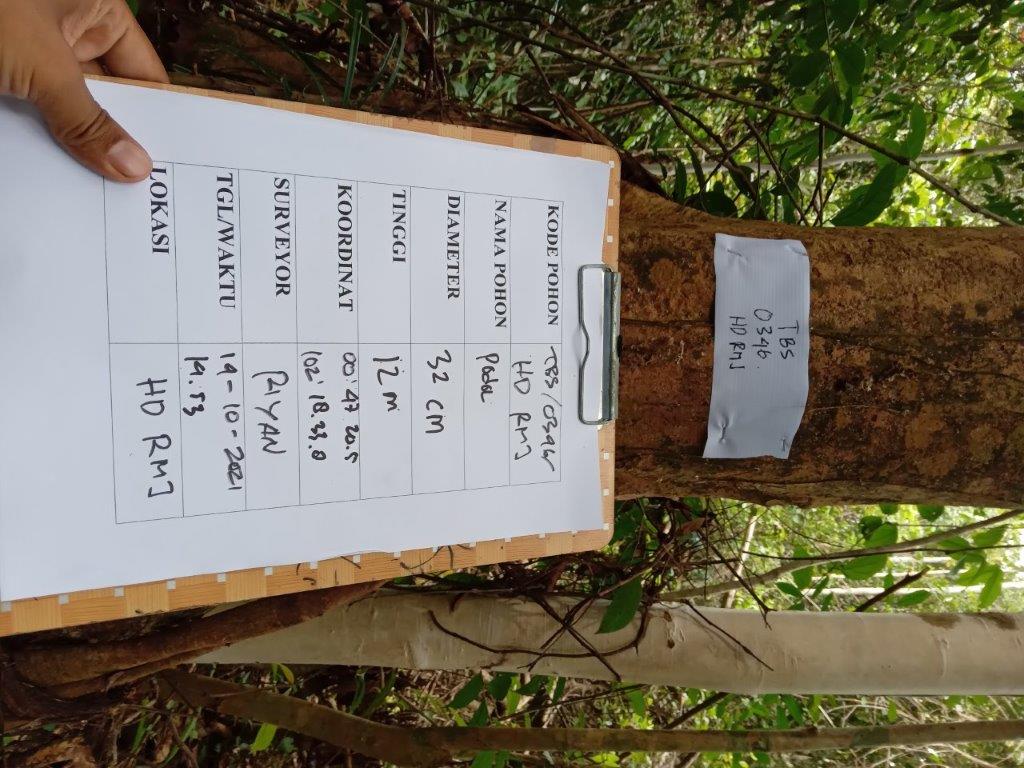 TBS
0346.
HD RMJ
KODE POHON TBS/0346/
HD RMJ
NAMA POHON
DIAMETER 32 cm
TINGGI 12 m
KOORDINAT 00' 47 20.5
102' 18.33.8
SURVEYOR RIYAN
TGL/WAKTU 14-10-2021
14.53
LOKASI HD RMJ